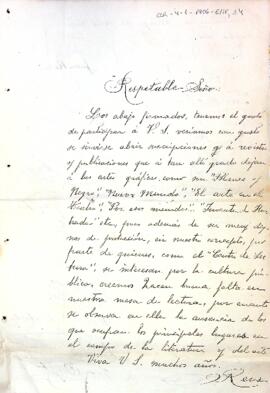 Respetable Señor:
Los abajo firmados, tenemos el gusto
de participar á V. S. veriamos con gusto
se sirviese abrir suscripciones á revistas
y publicaciones que á tan alto grado dejan
á las artes gráficas, como son "Blanco y
Negro", "Nuevo Mundo", "El arte en el
"Por esos mundos",
etc, pues además de ser muy dig-
nos de protección, en nuestro concepto, por
parte de quienes, como el "Centro de Lec-
tura", se interesan por la cultura pú-
blica, creemos hacen buena falta en
nuestra mesa de lectura, por cuanto
se observa en ella la ausencia de los
que ocupan los principales lugares en
el campo de la literatura y del arte
Viva V. S. muchos años.
Reus